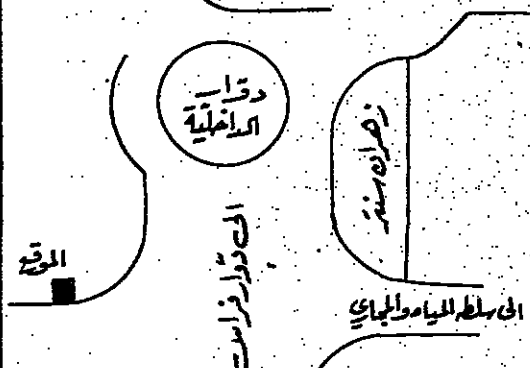 دوار
الداخلية
زهران سنتر
الموقع
الى دوار فراس
الى سلطه المياه والمجاري